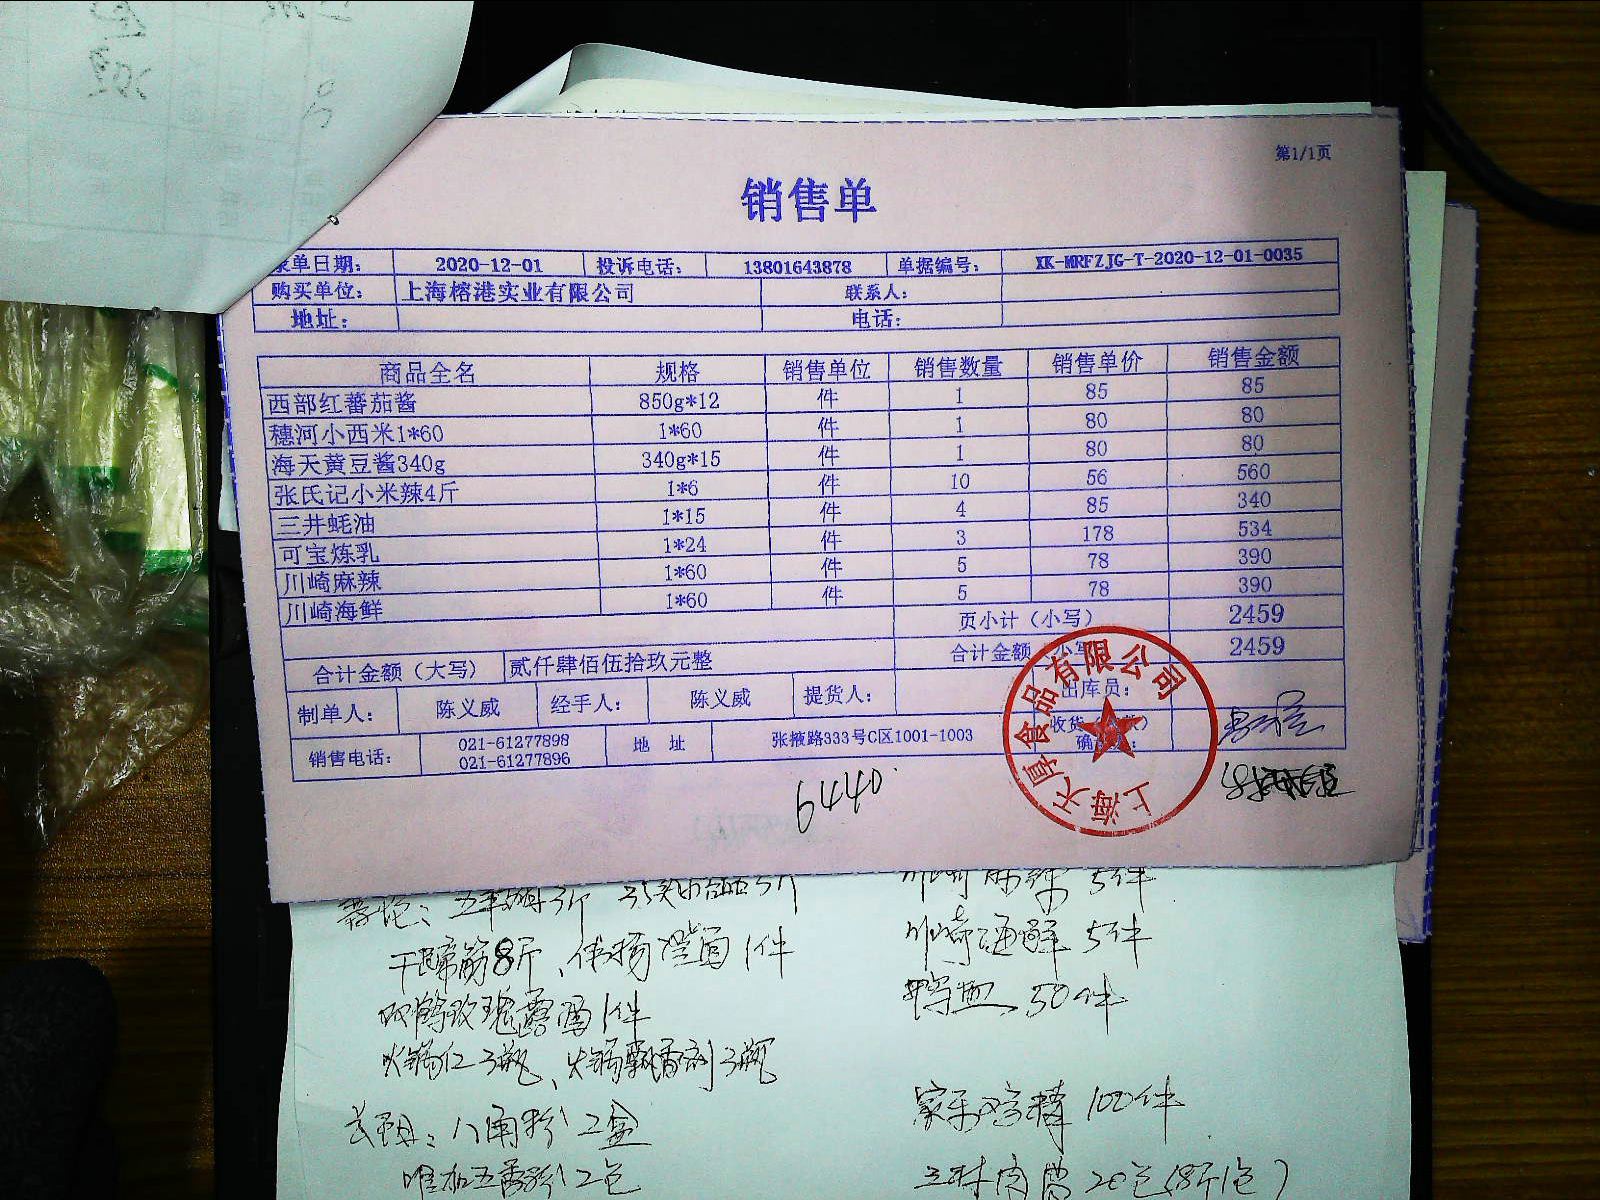 第1/1页
销售单
录单日期： 2020-12-01 投诉电话： 13801643878 单据编号： XK-MRFZJG-T-2020-12-01-0035
购买单位： 上海榕港实业有限公司 联系人：
地址： 电话：
商品全名 规格 销售单位 销售数量 销售单价 销售金额
西部红蕃茄酱 850g*12 件 1 85 85
穗河小西米1*60 1*60 件 1 80 80
海天黄豆酱340g 340g*15 件 1 80 80
张氏记小米辣4斤 1*6 件 10 56 560
三井蚝油 1*15 件 4 85 340
可宝炼乳 1*24 件 3 178 534
川崎麻辣 1*60 件 5 78 390
川崎海鲜 1*60 件 5 78 390
页小计（小写） 2459
合计金额（大写） 贰仟肆佰伍拾玖元整 合计金额 小写 2459
制单人： 陈义威 经手人： 陈义威 提货人： 出库员：
销售电话： 021-61277898 021-61277896 地 址 张掖路333号C区1001-1003 收货
上海天厚食品有限公司
6440
川崎麻辣 5件
干蹄筋8斤、 1件 川崎海鲜 5件
双鹤玫瑰露酒1件 鸭血 50件
火锅红3瓶、火锅飘香剂3瓶
八角粉12盒 家乐鸡精 100件
五香粉12包 20包(8斤1包)